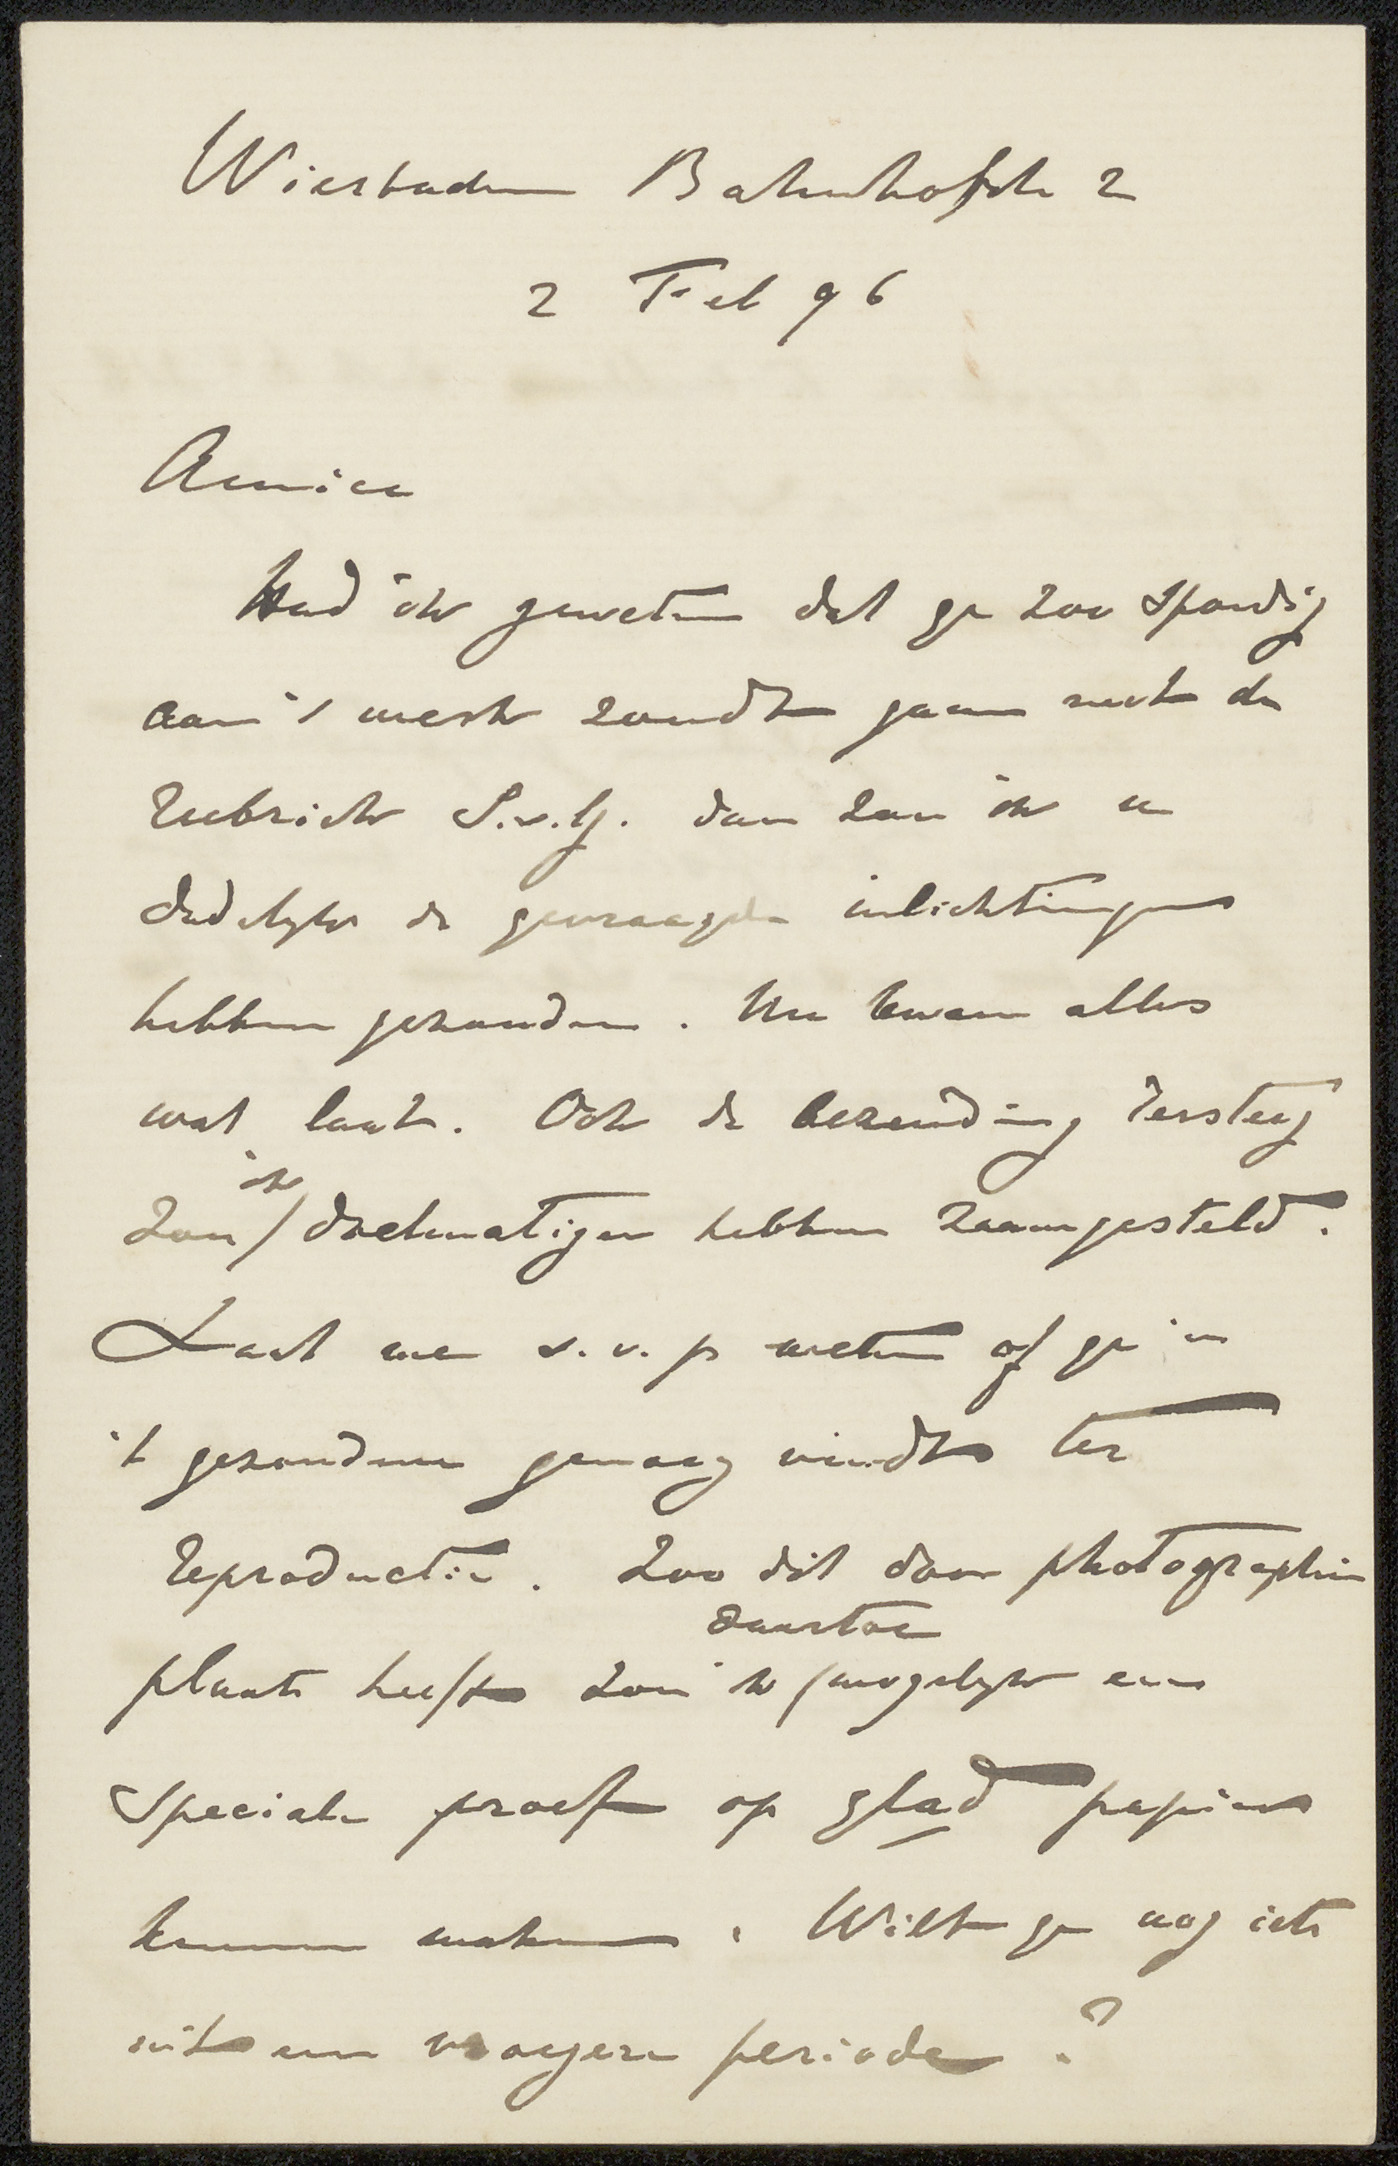 Wiesbaden Bahnhofstr 2
2 Feb 96
Amice
Had ik geweten dat ge zoo spoedig
aan 't werk zoudt gaan met de
rubriek S.v.G. dan zou ik u
dadelijk de gevraagde inlichtingen
hebben gezonden. Nu kwam alles
wat laat. Ook de bezending Tersteeg
ik
zou / doelmatiger hebben zaamgesteld.
Laat me s.v.p weten of ge in
't gezondene genoeg vindt ter
reproductie. Zoo dit door photographie
daartoe
plaats heeft zou ik / mogelijk een
speciale proef op glad papier
kunnen maken. Wilt ge nog iets
uit een vroegere periode?